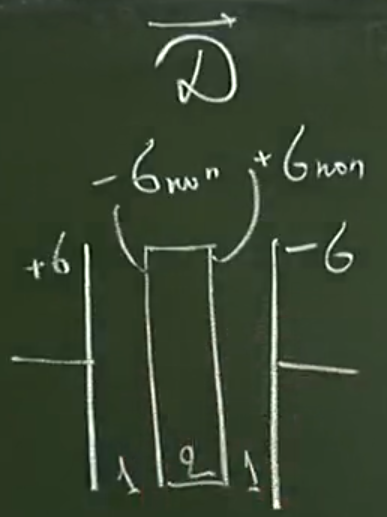 D
-σпол +σпол
+σ -σ
1 2 1